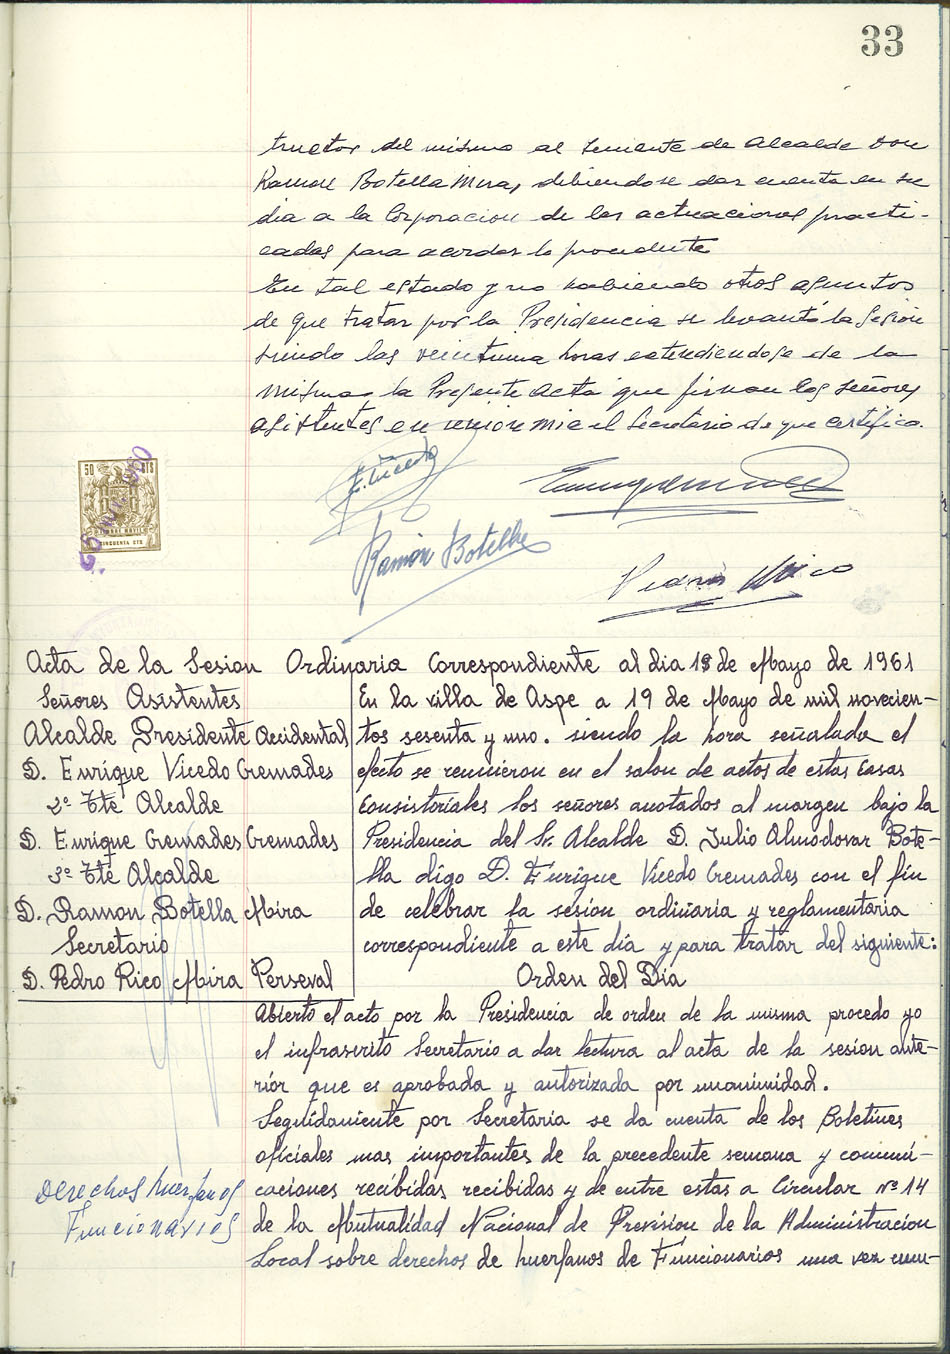 33
tructor del mismo al teniente de Alcalde Don
Ramon Botella Mira, debiendose dar cuenta en su
dia a la Corporacion de las actuaciones practi-
cadas para acordar lo procedente
En tal estado y no habiendo otros asuntos
de que tratar por la Presidencia se levantó la Sesion
siendo las veintiuna horas extendiendose de la
misma la Presente Acta que firman los Señores
asistentes en union mia el Secretario de que certifico.
50 CTS
E. Vicedo
Ramón Botella
Pedro Rico
Acta de la Sesion Ordinaria Correspondiente al dia 18 de Mayo de 1961
Señores Asistentes
Alcalde Presidente Accidental
D. Enrique Vicedo Cremades
2º Tte Alcalde
D. Enrique Cremades Cremades
3º Tte Alcalde
D. Ramon Botella Mira
Secretario
D. Pedro Rico Mira Perseval
En la villa de Aspe a 19 de Mayo de mil novecien-
tos sesenta y uno. siendo la hora señalada el
efecto se reunieron en el salon de actos de estas Casas
Consistoriales los señores anotados al margen bajo la
Presidencia del Sr. Alcalde D. Julio Almodovar Bote-
lla digo D. Enrique Vicedo Cremades con el fin
de celebrar la sesion ordinaria y reglamentaria
correspondiente a este día y para tratar del siguiente:
Orden del Día
Abierto el acto por la Presidencia de orden de la misma procedo yo
el infrascrito Secretario a dar lectura al acta de la sesion ante-
rior que es aprobada y autorizada por unanimidad.
Seguidamente por Secretaria se da cuenta de los Boletines
oficiales mas importantes de la precedente semana y comuni-
caciones recibidas recibidas y de entre estas a Circular nº 14
de la Mutualidad Nacional de Prevision de la Administracion
Local sobre derechos de huerfanos de Funcionarios una vez cum-
Derechos huerfanos
Funcionarios